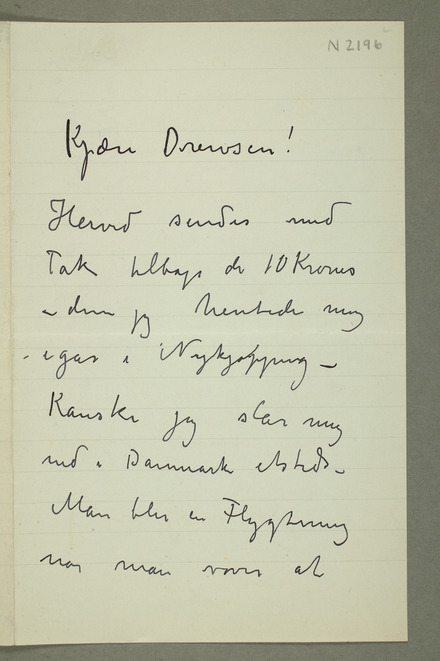 N 2196
Kjære Drewsen!
Herved sendes med
Tak tilbage de 10 Kroner
– dem jeg hentede mig
igår i Nykjøbbing –
Kanske jeg slår mig
ned i Danmark etsteds –
Man blir en Flygtning
når man vover at